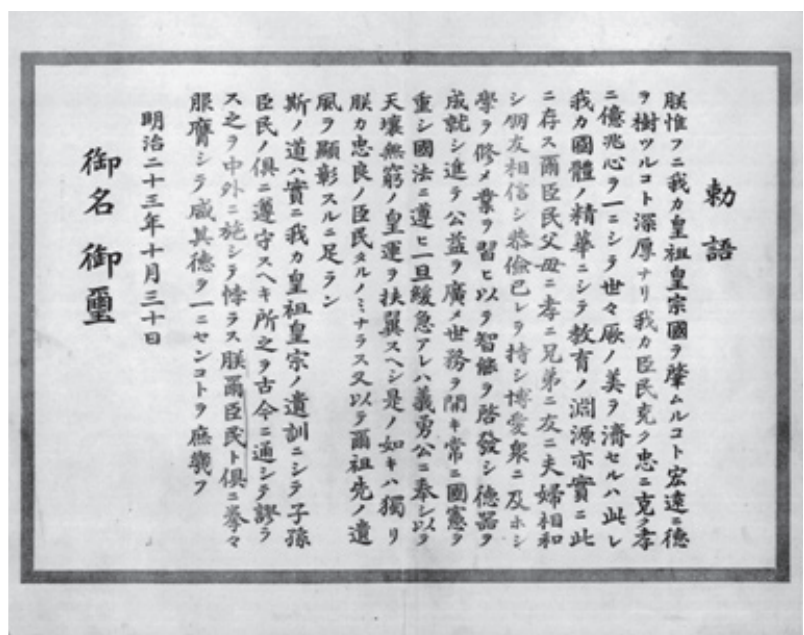 勅語
朕惟フニ我カ皇祖皇宗國ヲ肇ムルコト宏遠ニ德
ヲ樹ツルコト深厚ナリ我カ臣民克ク忠ニ克ク孝
ニ億兆心ヲ一ニシテ世々厥ノ美ヲ濟セルハ此レ
我カ國體ノ精華ニシテ教育ノ淵源亦實ニ此
ニ存ス爾臣民父母ニ孝ニ兄弟ニ友ニ夫婦相和
シ朋友相信シ恭儉己レヲ持シ博愛衆ニ及ホシ
學ヲ修メ業ヲ習ヒ以テ智能ヲ啓發シ德器ヲ
成就シ進テ公益ヲ廣メ世務ヲ開キ常ニ國憲ヲ
重シ國法ニ遵ヒ一旦緩急アレハ義勇公ニ奉シ以テ
天壤無窮ノ皇運ヲ扶翼スヘシ是ノ如キハ獨リ
朕カ忠良ノ臣民タルノミナラス又以テ爾祖先ノ遺
風ヲ顯彰スルニ足ラン
斯ノ道ハ實ニ我カ皇祖皇宗ノ遺訓ニシテ子孫
臣民ノ俱ニ遵守スヘキ所之ヲ古今ニ通シテ謬ラ
ス之ヲ中外ニ施シテ悖ラス朕爾臣民ト俱ニ拳々
服膺シテ咸其德ヲ一ニセンコトヲ庶幾フ
明治二十三年十月三十日
御名 御璽